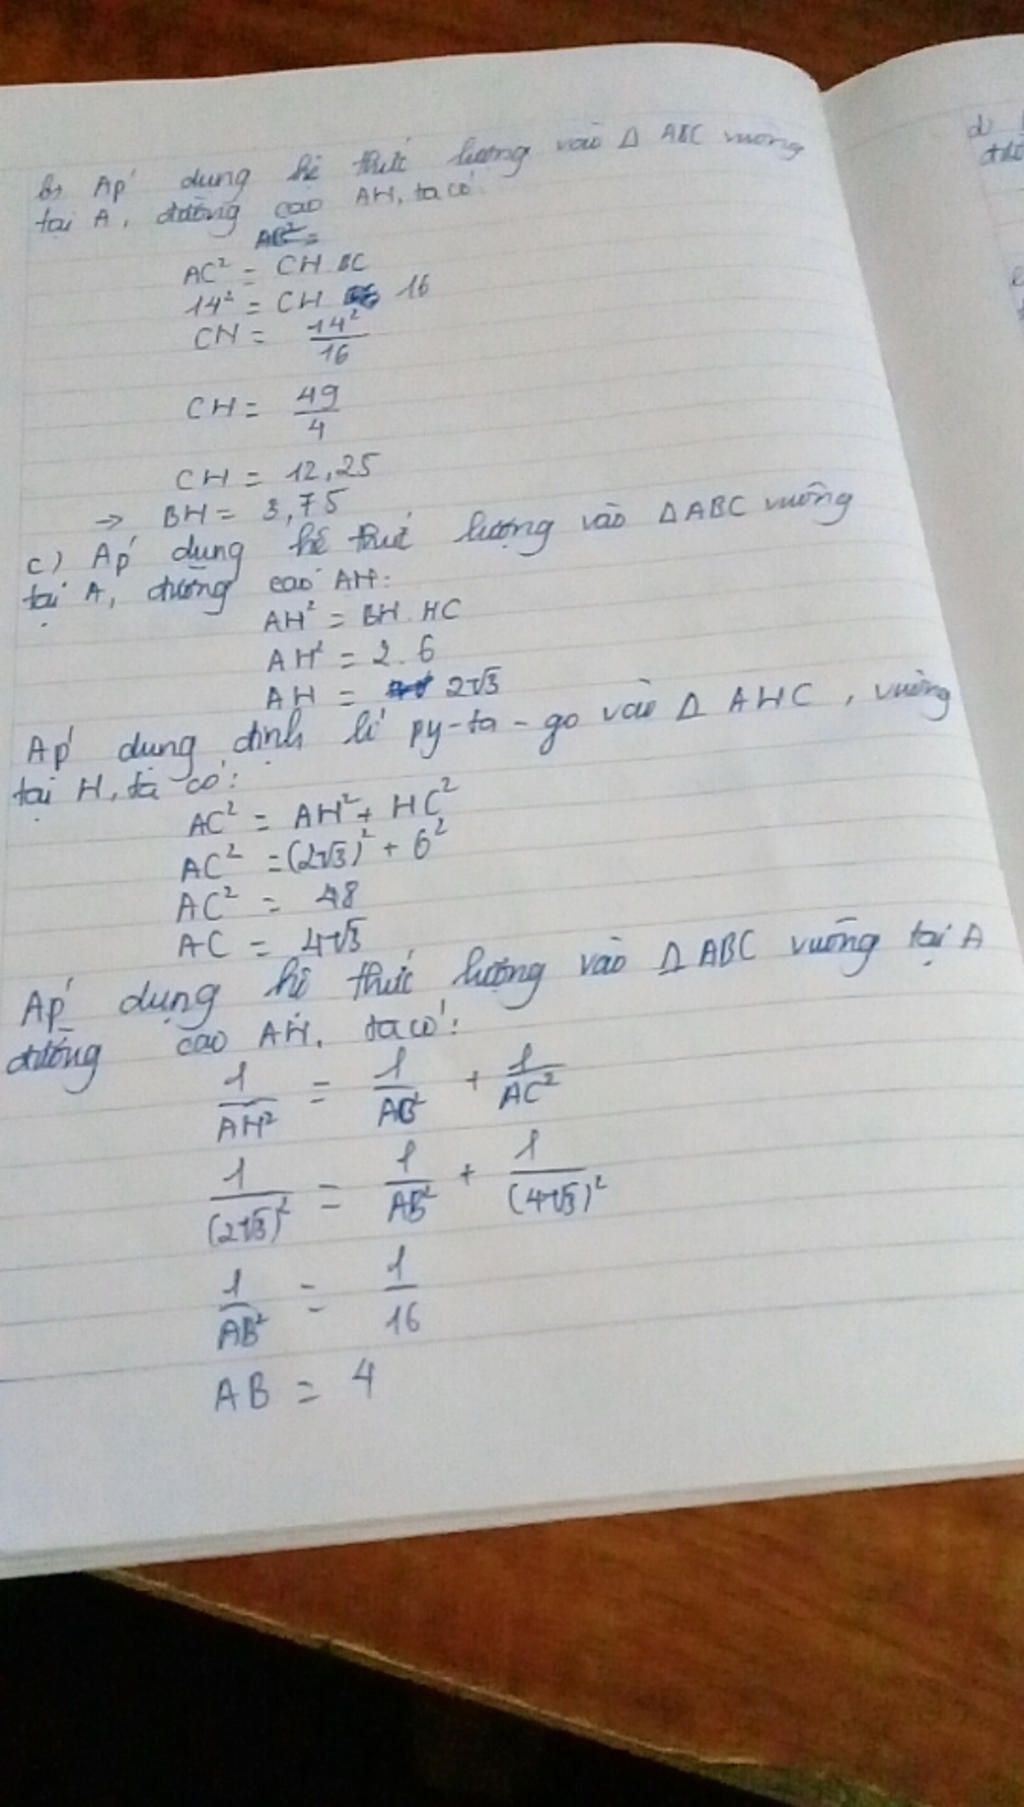 b) Áp dụng hệ thức lượng vào Δ ABC vuông
tại A, đường cao AH, ta có:
AB² =
AC² = CH.BC
14² = CH 16
CH = 14²/16
CH = 49/4
CH = 12,25
→ BH = 3,75
c) Áp dụng hệ thức lượng vào ΔABC vuông
tại A, đường cao AH:
AH² = BH.HC
AH² = 2.6
AH = 2√3
Áp dụng định lí py-ta-go vào Δ AHC, vuông
tại H, ta có:
AC² = AH² + HC²
AC² = (2√3)² + 6²
AC² = 48
AC = 4√3
Áp dụng hệ thức lượng vào ΔABC vuông tại A
đường cao AH, ta có:
1/AH² = 1/AB² + 1/AC²
1/(2√3)² = 1/AB² + 1/(4√3)²
1/AB² = 1/16
AB = 4
d)